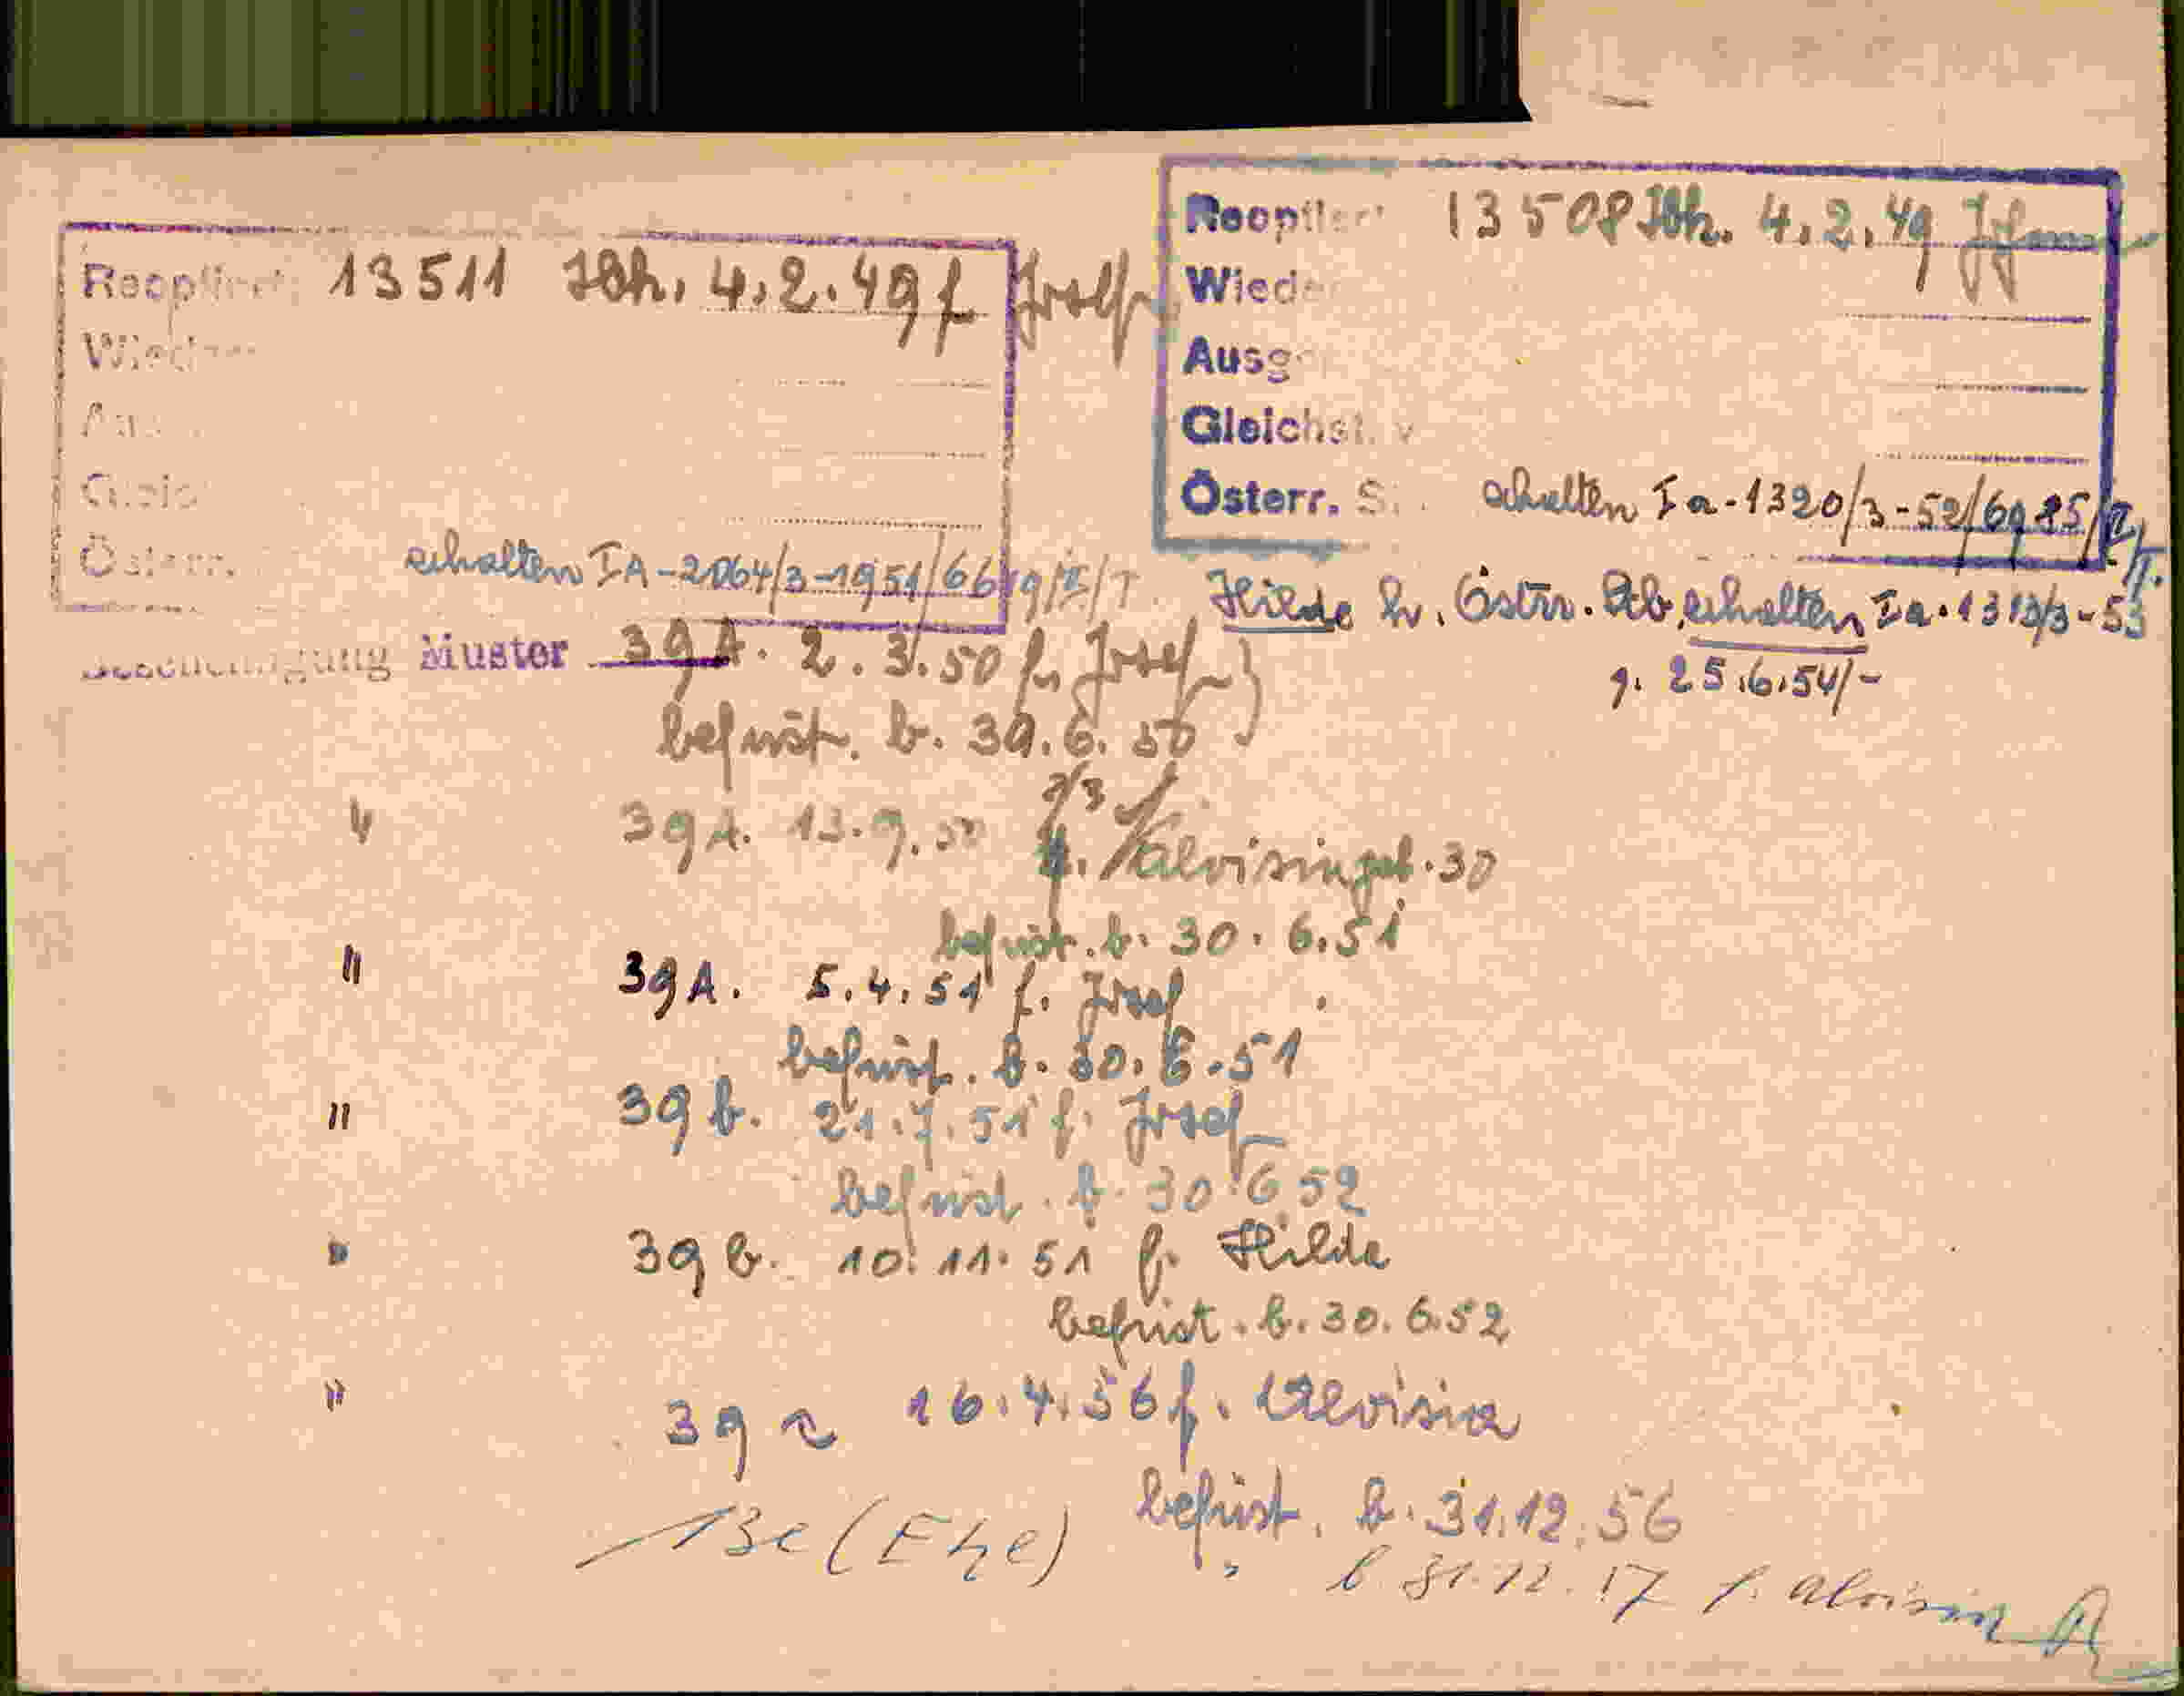 Reoptiert 13511 Jbh. 4.2.49 f Josef
Wieder
Aus
Gleic
Österr. erhalten IA-2064/3-1951/66 9/I/T
Bescheinigung Muster 39 A. 2.3.50 f. Josef
befrist. b. 30.6.50
" 39 A. 13.9.50 f. Aloisia geb. 30
befrist. b. 30.6.51
" 39 A. 5.4.51 f. Josef
befrist. b. 30.6.51
" 39 b. 21.7.51 f. Josef
befrist. b. 30.6.52
" 39 b. 10.11.51 f. Hilde
befrist. b. 30.6.52
" 39 a 16.4.56 f. Aloisia
befrist. b. 31.12.56
13c (Ehe) " b 31.12.57 f. Aloisia
Reoptiert 13508 Jbh. 4.2.49
Wieder
Ausg
Gleichst. v
Österr. S. erhalten Ia-1320/3-52/6985/II
Hilde h. Östr. Stb. erhalten Ia-1313/3-53
g. 25.6.54/-